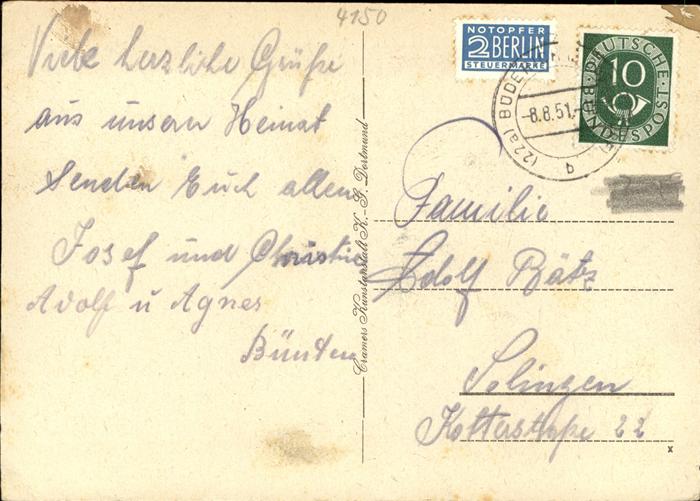 4150
Viele herzliche Grüße
aus unserer Heimat
Senden Euch allen
Josef und Christine
Adolf u Agnes
Bünten
Cramers Kunstanstalt K.-G. Dortmund
NOTOPFER
2 BERLIN
STEUERMARKE
DEUTSCHE BUNDESPOST
10
(22a) BÜDERI
-8.8.51.-
q
Familie
Adolf Bätz
Solingen
Kotterstraße 22
x